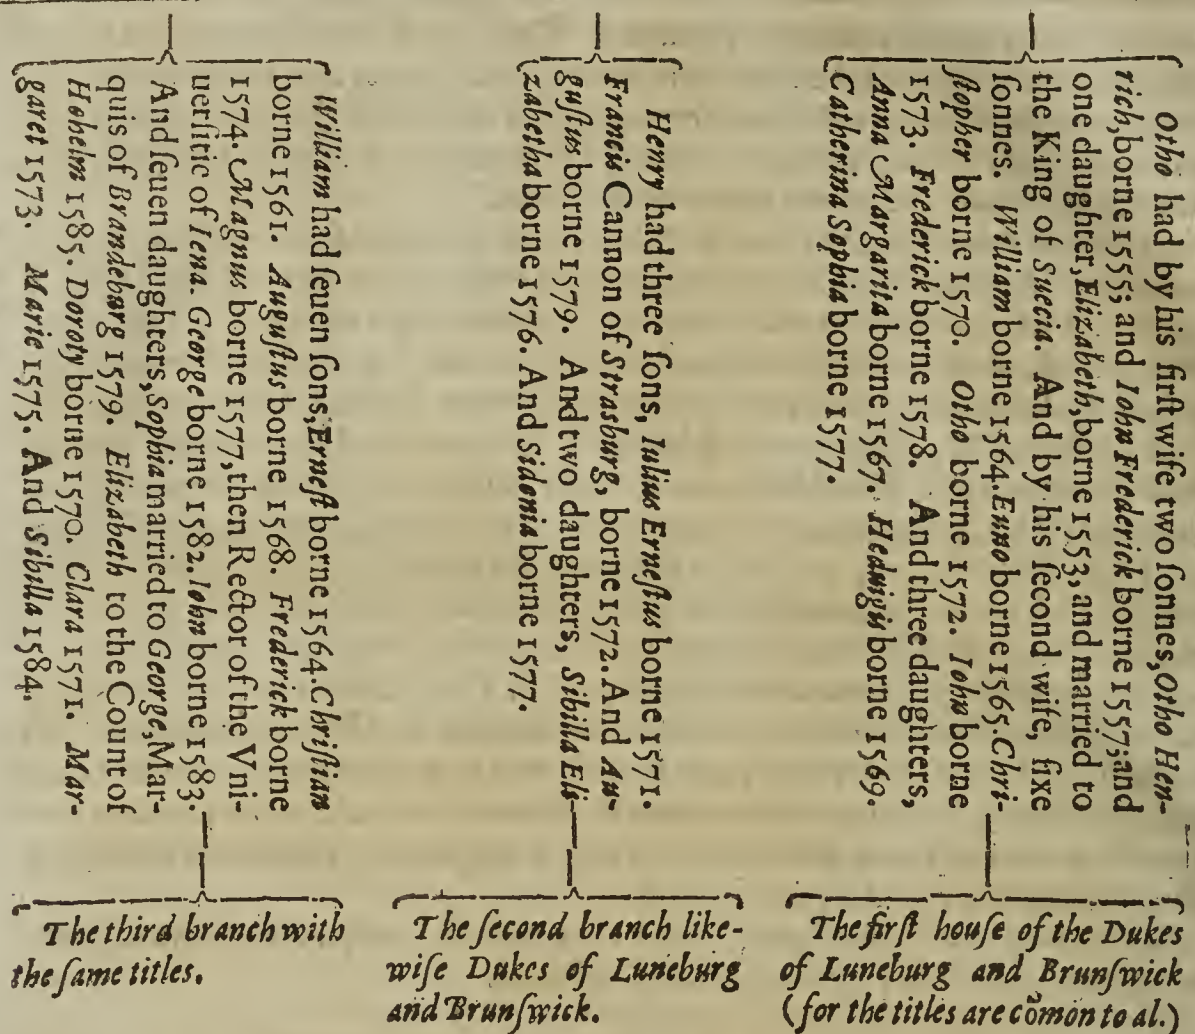 Otho had by his firſt wife two ſonnes, Otho Hen-
rich, borne 1555; and Iohn Frederick borne 1557; and
one daughter, Elizabeth, borne 1553, and married to
the King of Suecia. And by his ſecond wife, ſixe
ſonnes. William borne 1564. Enno borne 1565. Chri-
ſtopher borne 1570. Otho borne 1572. Iohn borne
1573. Frederick borne 1578. And three daughters,
Anna Margarita borne 1567. Hedwigis borne 1569.
Catherina Sophia borne 1577.
The firſt houſe of the Dukes
of Luneburg and Brunſwick
(for the titles are cõmon to al.)
Henry had three ſons, Iulius Erneſtus borne 1571.
Francis Cannon of Strasburg, borne 1572. And Au-
guſtus borne 1579. And two daughters, Sibilla Eli-
zabetha borne 1576. And Sidonia borne 1577.
The ſecond branch like-
wiſe Dukes of Luneburg
and Brunſwick.
William had ſeuen ſons, Erneſt borne 1564. Chriſtian
borne 1561. Auguſtus borne 1568. Frederick borne
1574. Magnus borne 1577, then Rector of the Vni-
uerſitie of Iena. George borne 1582. Iohn borne 1583.
And ſeuen daughters, Sophia married to George, Mar-
quis of Brandeburg 1579. Elizabeth to the Count of
Hohelm 1585. Doroty borne 1570. Clara 1571. Mar-
garet 1573. Marie 1575. And Sibilla 1584.
The third branch with
the ſame titles.